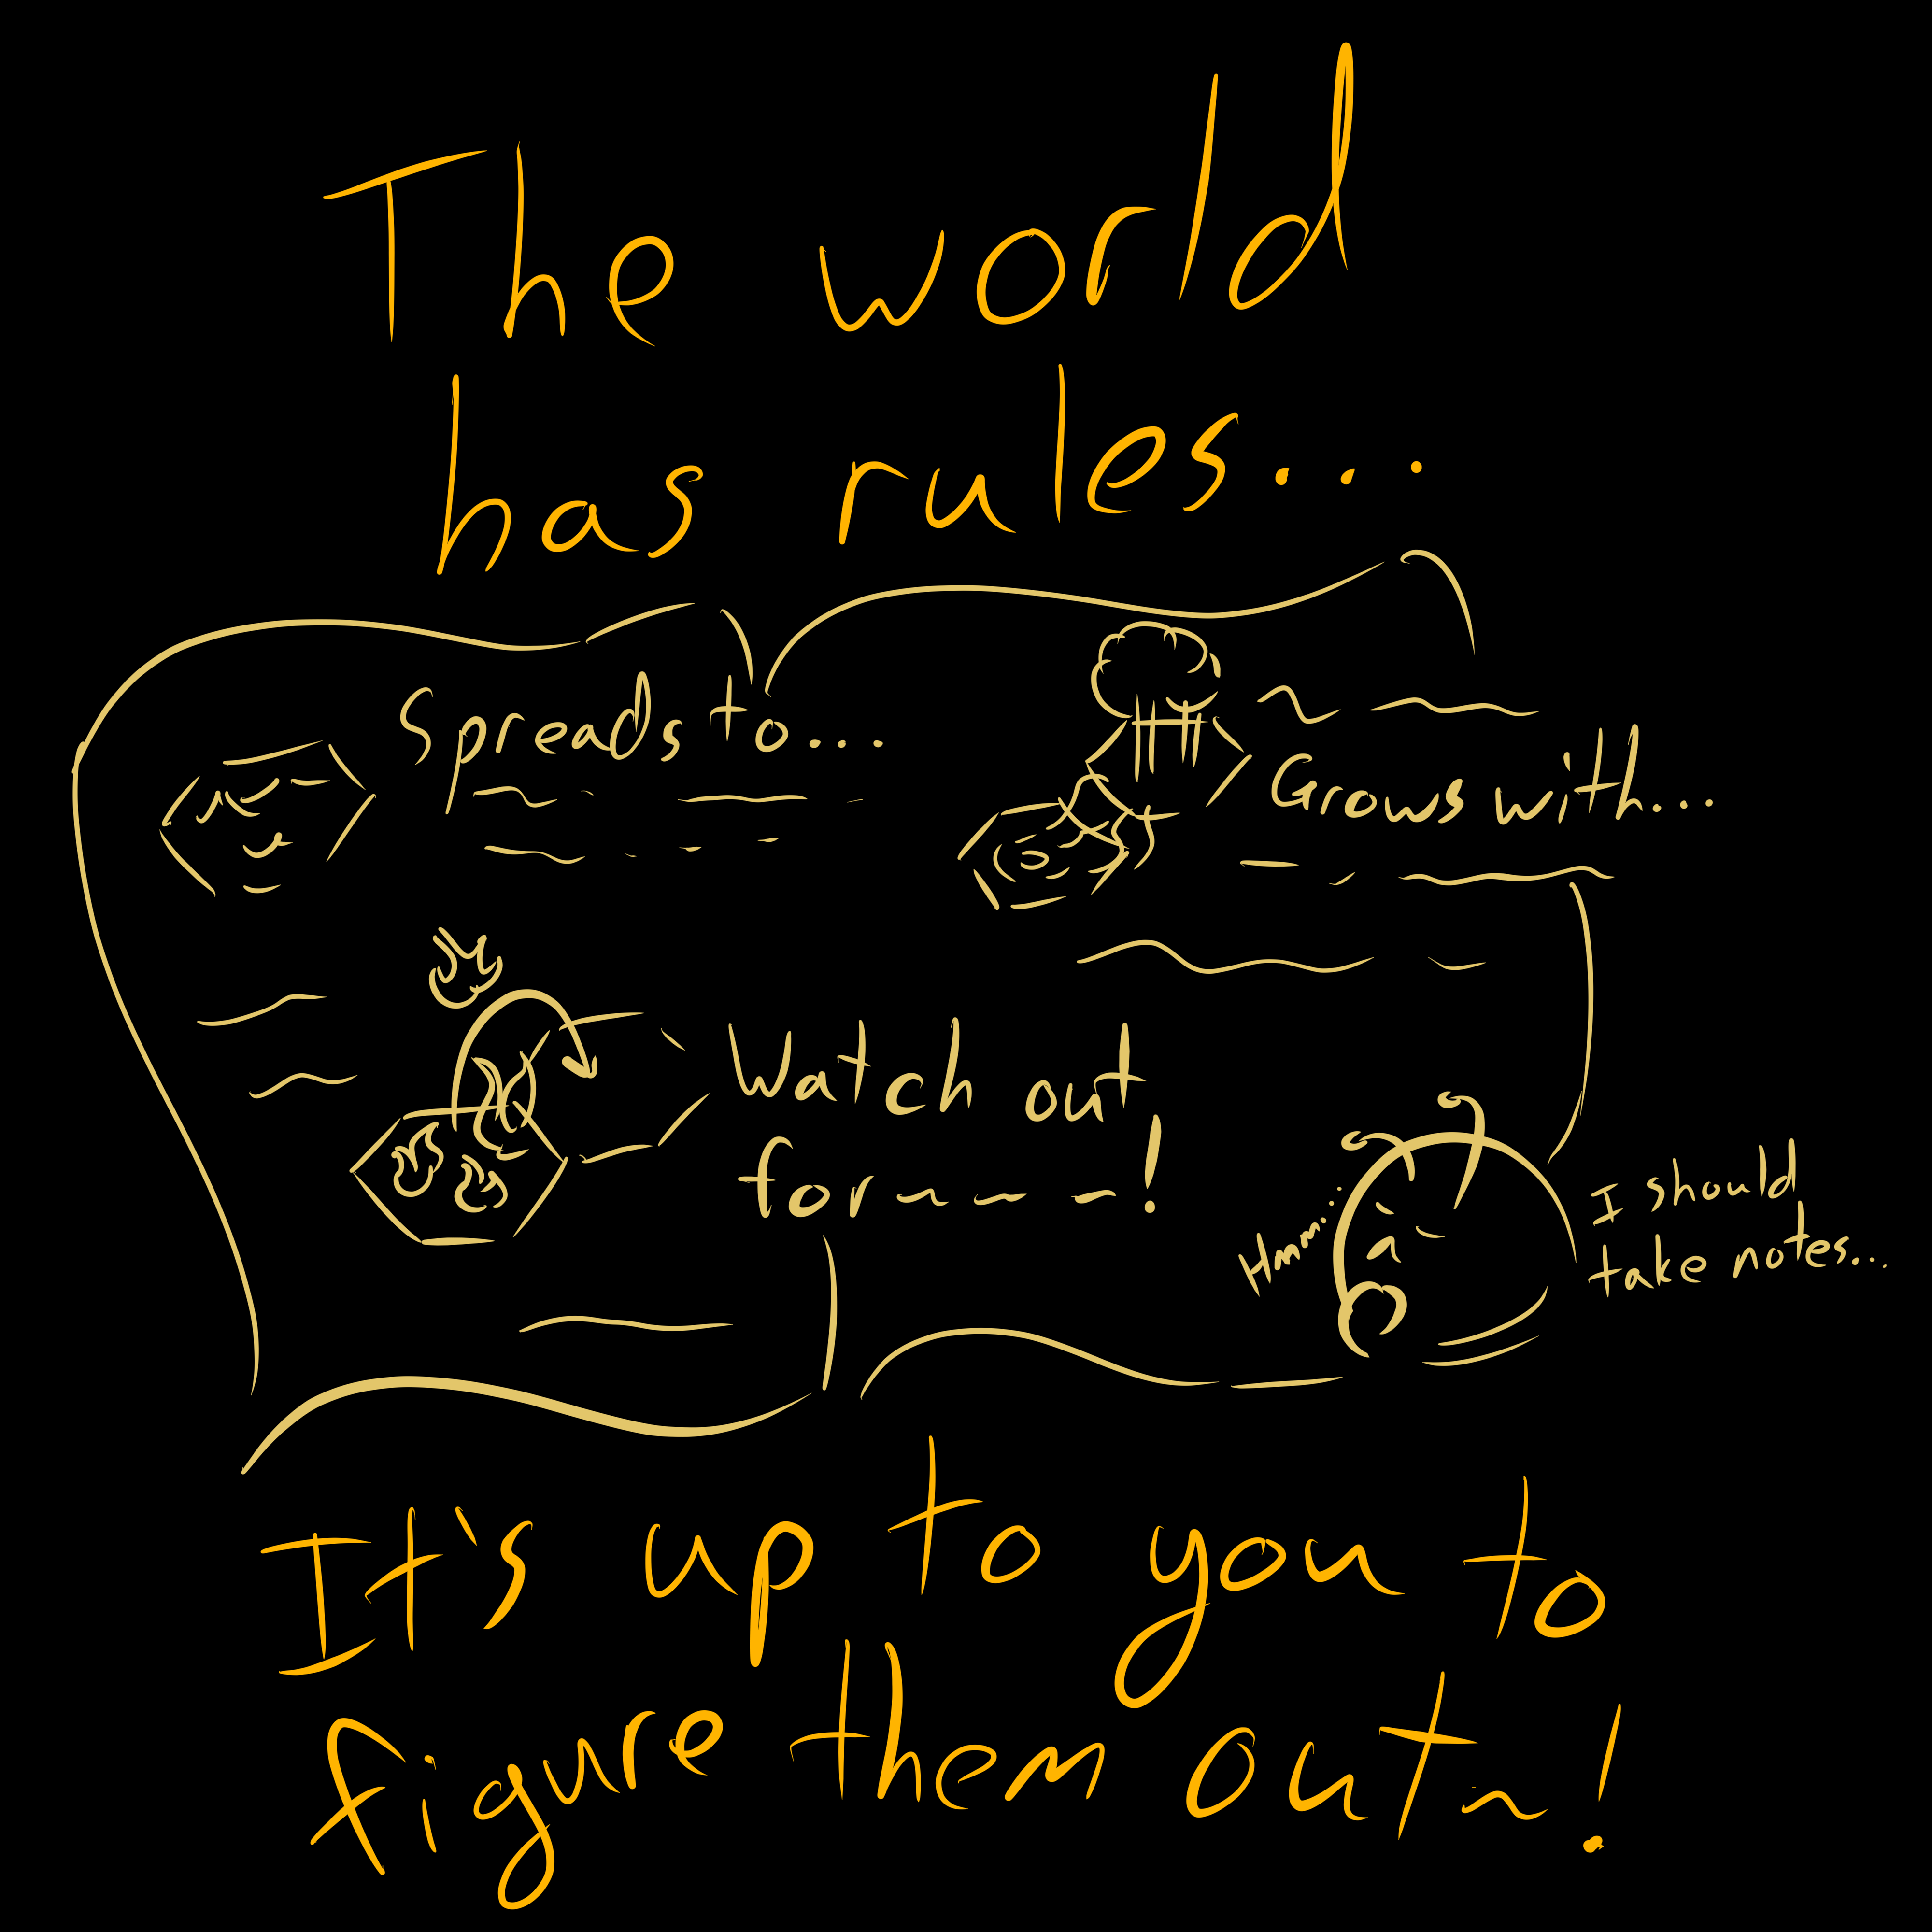 The world
has rules...
Spreads to...
Grows with...
Watch out
for ~ - - ~ - ~!
Hmmm...
I should
take notes...
It's up to you to
figure them out~!